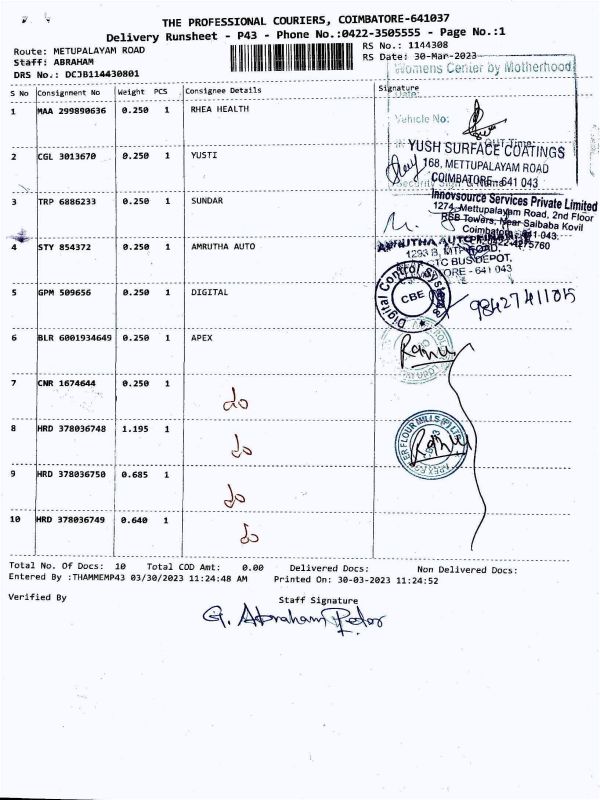 THE PROFESSIONAL COURIERS, COIMBATORE-641037
Delivery Runsheet - P43 - Phone No.:0422-3505555 - Page No.:1
Route: METUPALAYAM ROAD
RS No.: 1144308
Staff: ABRAHAM
RS Date: 30-Mar-2023
DRS No.: DCJB114430801
S No Consignment No Weight PCS Consignee Details Signature
1 MAA 299890636 0.250 1 RHEA HEALTH
Womens Center by Motherhood
Date:
Vehicle No:
OUT Time:
2 CGL 3013670 0.250 1 YUSTI
YUSH SURFACE COATINGS
168, METTUPALAYAM ROAD
COIMBATORE - 641 043
3 TRP 6886233 0.250 1 SUNDAR
Innovsource Services Private Limited
1274, Mettupalayam Road, 2nd Floor
RSB Towers, Near Saibaba Kovil
Coimbatore - 641 043.
4 STY 854372 0.250 1 AMRUTHA AUTO
1293 B, MTP ROAD,
TC BUS DEPOT,
5 GPM 509656 0.250 1 DIGITAL
Digital Control Systems
CBE
9842741105
6 BLR 6001934649 0.250 1 APEX
7 CNR 1674644 0.250 1
do
8 HRD 378036748 1.195 1
do
9 HRD 378036750 0.685 1
do
10 HRD 378036749 0.640 1
do
Total No. Of Docs: 10 Total COD Amt: 0.00 Delivered Docs: Non Delivered Docs:
Entered By :THAMMEMP43 03/30/2023 11:24:48 AM Printed On: 30-03-2023 11:24:52
Verified By Staff Signature
G. Abraham Peter